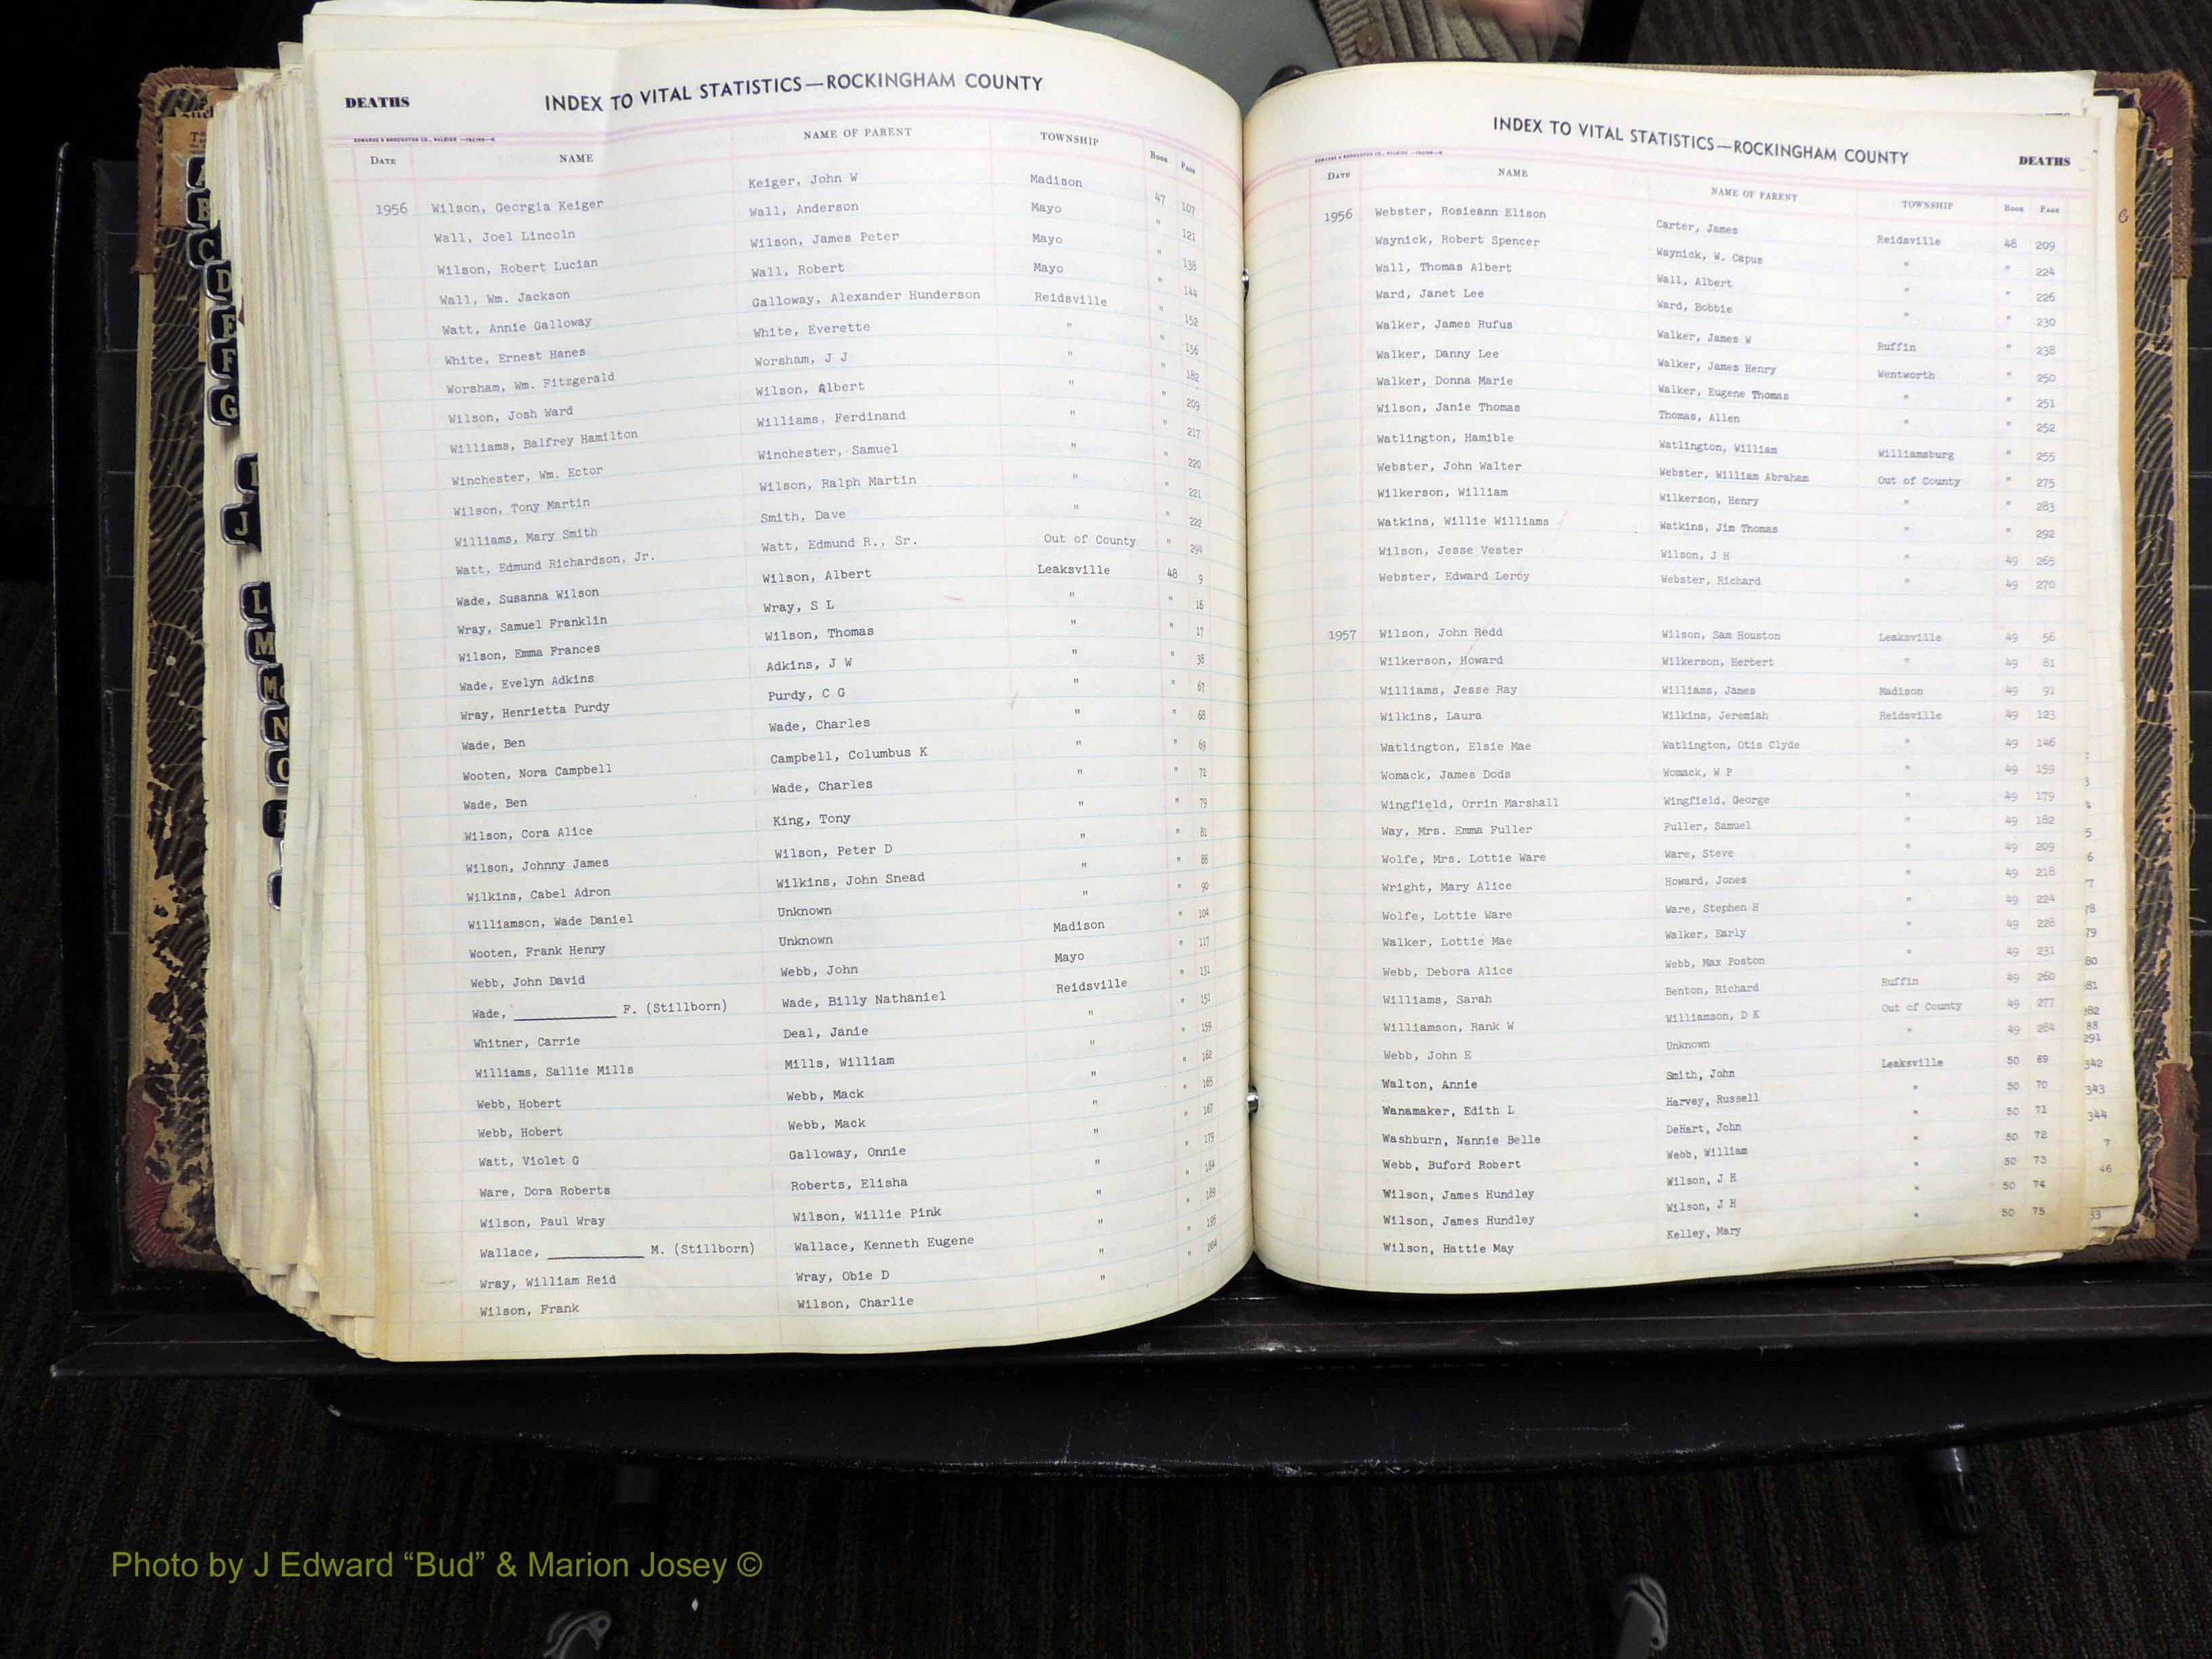 DEATHS INDEX TO VITAL STATISTICS—ROCKINGHAM COUNTY
DATE NAME NAME OF PARENT TOWNSHIP Book Page
1956 Wilson, Georgia Keiger Keiger, John W Madison 47 107
Wall, Joel Lincoln Wall, Anderson Mayo " 121
Wilson, Robert Lucian Wilson, James Peter Mayo " 138
Wall, Wm. Jackson Wall, Robert Mayo " 144
Watt, Annie Galloway Galloway, Alexander Hunderson Reidsville " 152
White, Ernest Hanes White, Everette " " 156
Worsham, Wm. Fitzgerald Worsham, J J " " 182
Wilson, Josh Ward Wilson, Albert " " 209
Williams, Balfrey Hamilton Williams, Ferdinand " " 217
Winchester, Wm. Ector Winchester, Samuel " " 220
Wilson, Tony Martin Wilson, Ralph Martin " " 221
Williams, Mary Smith Smith, Dave " " 222
Watt, Edmund Richardson, Jr. Watt, Edmund R., Sr. Out of County " 294
Wade, Susanna Wilson Wilson, Albert Leaksville 48 9
Wray, Samuel Franklin Wray, S L " " 16
Wilson, Emma Frances Wilson, Thomas " " 17
Wade, Evelyn Adkins Adkins, J W " " 38
Wray, Henrietta Purdy Purdy, C G " " 67
Wade, Ben Wade, Charles " " 68
Wooten, Nora Campbell Campbell, Columbus K " " 69
Wade, Ben Wade, Charles " " 72
Wilson, Cora Alice King, Tony " " 79
Wilson, Johnny James Wilson, Peter D " " 81
Wilkins, Cabel Adron Wilkins, John Snead " " 88
Williamson, Wade Daniel Unknown " " 90
Wooten, Frank Henry Unknown Madison " 104
Webb, John David Webb, John Mayo " 117
Wade, ____________ F. (Stillborn) Wade, Billy Nathaniel Reidsville " 131
Whitner, Carrie Deal, Janie " " 151
Williams, Sallie Mills Mills, William " " 159
Webb, Hobert Webb, Mack " " 162
Webb, Hobert Webb, Mack " " 165
Watt, Violet G Galloway, Onnie " " 167
Ware, Dora Roberts Roberts, Elisha " " 179
Wilson, Paul Wray Wilson, Willie Pink " " 184
Wallace, ____________ M. (Stillborn) Wallace, Kenneth Eugene " " 189
Wray, William Reid Wray, Obie D " " 195
Wilson, Frank Wilson, Charlie " " 204
INDEX TO VITAL STATISTICS—ROCKINGHAM COUNTY DEATHS
DATE NAME NAME OF PARENT TOWNSHIP Book Page
1956 Webster, Rosieann Elison Carter, James Reidsville 48 209
Waynick, Robert Spencer Waynick, W. Capus " " 224
Wall, Thomas Albert Wall, Albert " " 226
Ward, Janet Lee Ward, Bobbie " " 230
Walker, James Rufus Walker, James W Ruffin " 238
Walker, Danny Lee Walker, James Henry Wentworth " 250
Walker, Donna Marie Walker, Eugene Thomas " " 251
Wilson, Janie Thomas Thomas, Allen " " 252
Watlington, Hamible Watlington, William Williamsburg " 255
Webster, John Walter Webster, William Abraham Out of County " 275
Wilkerson, William Wilkerson, Henry " " 283
Watkins, Willie Williams Watkins, Jim Thomas " " 292
Wilson, Jesse Vester Wilson, J H " 49 265
Webster, Edward Leroy Webster, Richard " 49 270
1957 Wilson, John Redd Wilson, Sam Houston Leaksville 49 56
Wilkerson, Howard Wilkerson, Herbert " 49 81
Williams, Jesse Ray Williams, James Madison 49 91
Wilkins, Laura Wilkins, Jeremiah Reidsville 49 123
Watlington, Elsie Mae Watlington, Otis Clyde " 49 146
Womack, James Dods Womack, W P " 49 159
Wingfield, Orrin Marshall Wingfield, George " 49 179
Way, Mrs. Emma Fuller Fuller, Samuel " 49 182
Wolfe, Mrs. Lottie Ware Ware, Steve " 49 209
Wright, Mary Alice Howard, Jones " 49 218
Wolfe, Lottie Ware Ware, Stephen H " 49 224
Walker, Lottie Mae Walker, Early " 49 228
Webb, Debora Alice Webb, Max Poston " 49 231
Williams, Sarah Benton, Richard Ruffin 49 260
Williamson, Rank W Williamson, D K Out of County 49 277
Webb, John E Unknown " 49 284
Walton, Annie Smith, John Leaksville 50 69
Wanamaker, Edith L Harvey, Russell " 50 70
Washburn, Nannie Belle DeHart, John " 50 71
Webb, Buford Robert Webb, William " 50 72
Wilson, James Hundley Wilson, J H " 50 73
Wilson, James Hundley Wilson, J H " 50 74
Wilson, Hattie May Kelley, Mary " 50 75
A
B
C
D
E
F
G
J
L
M
Mc
N
O
342
343
344
7
46
Photo by J Edward “Bud” & Marion Josey ©